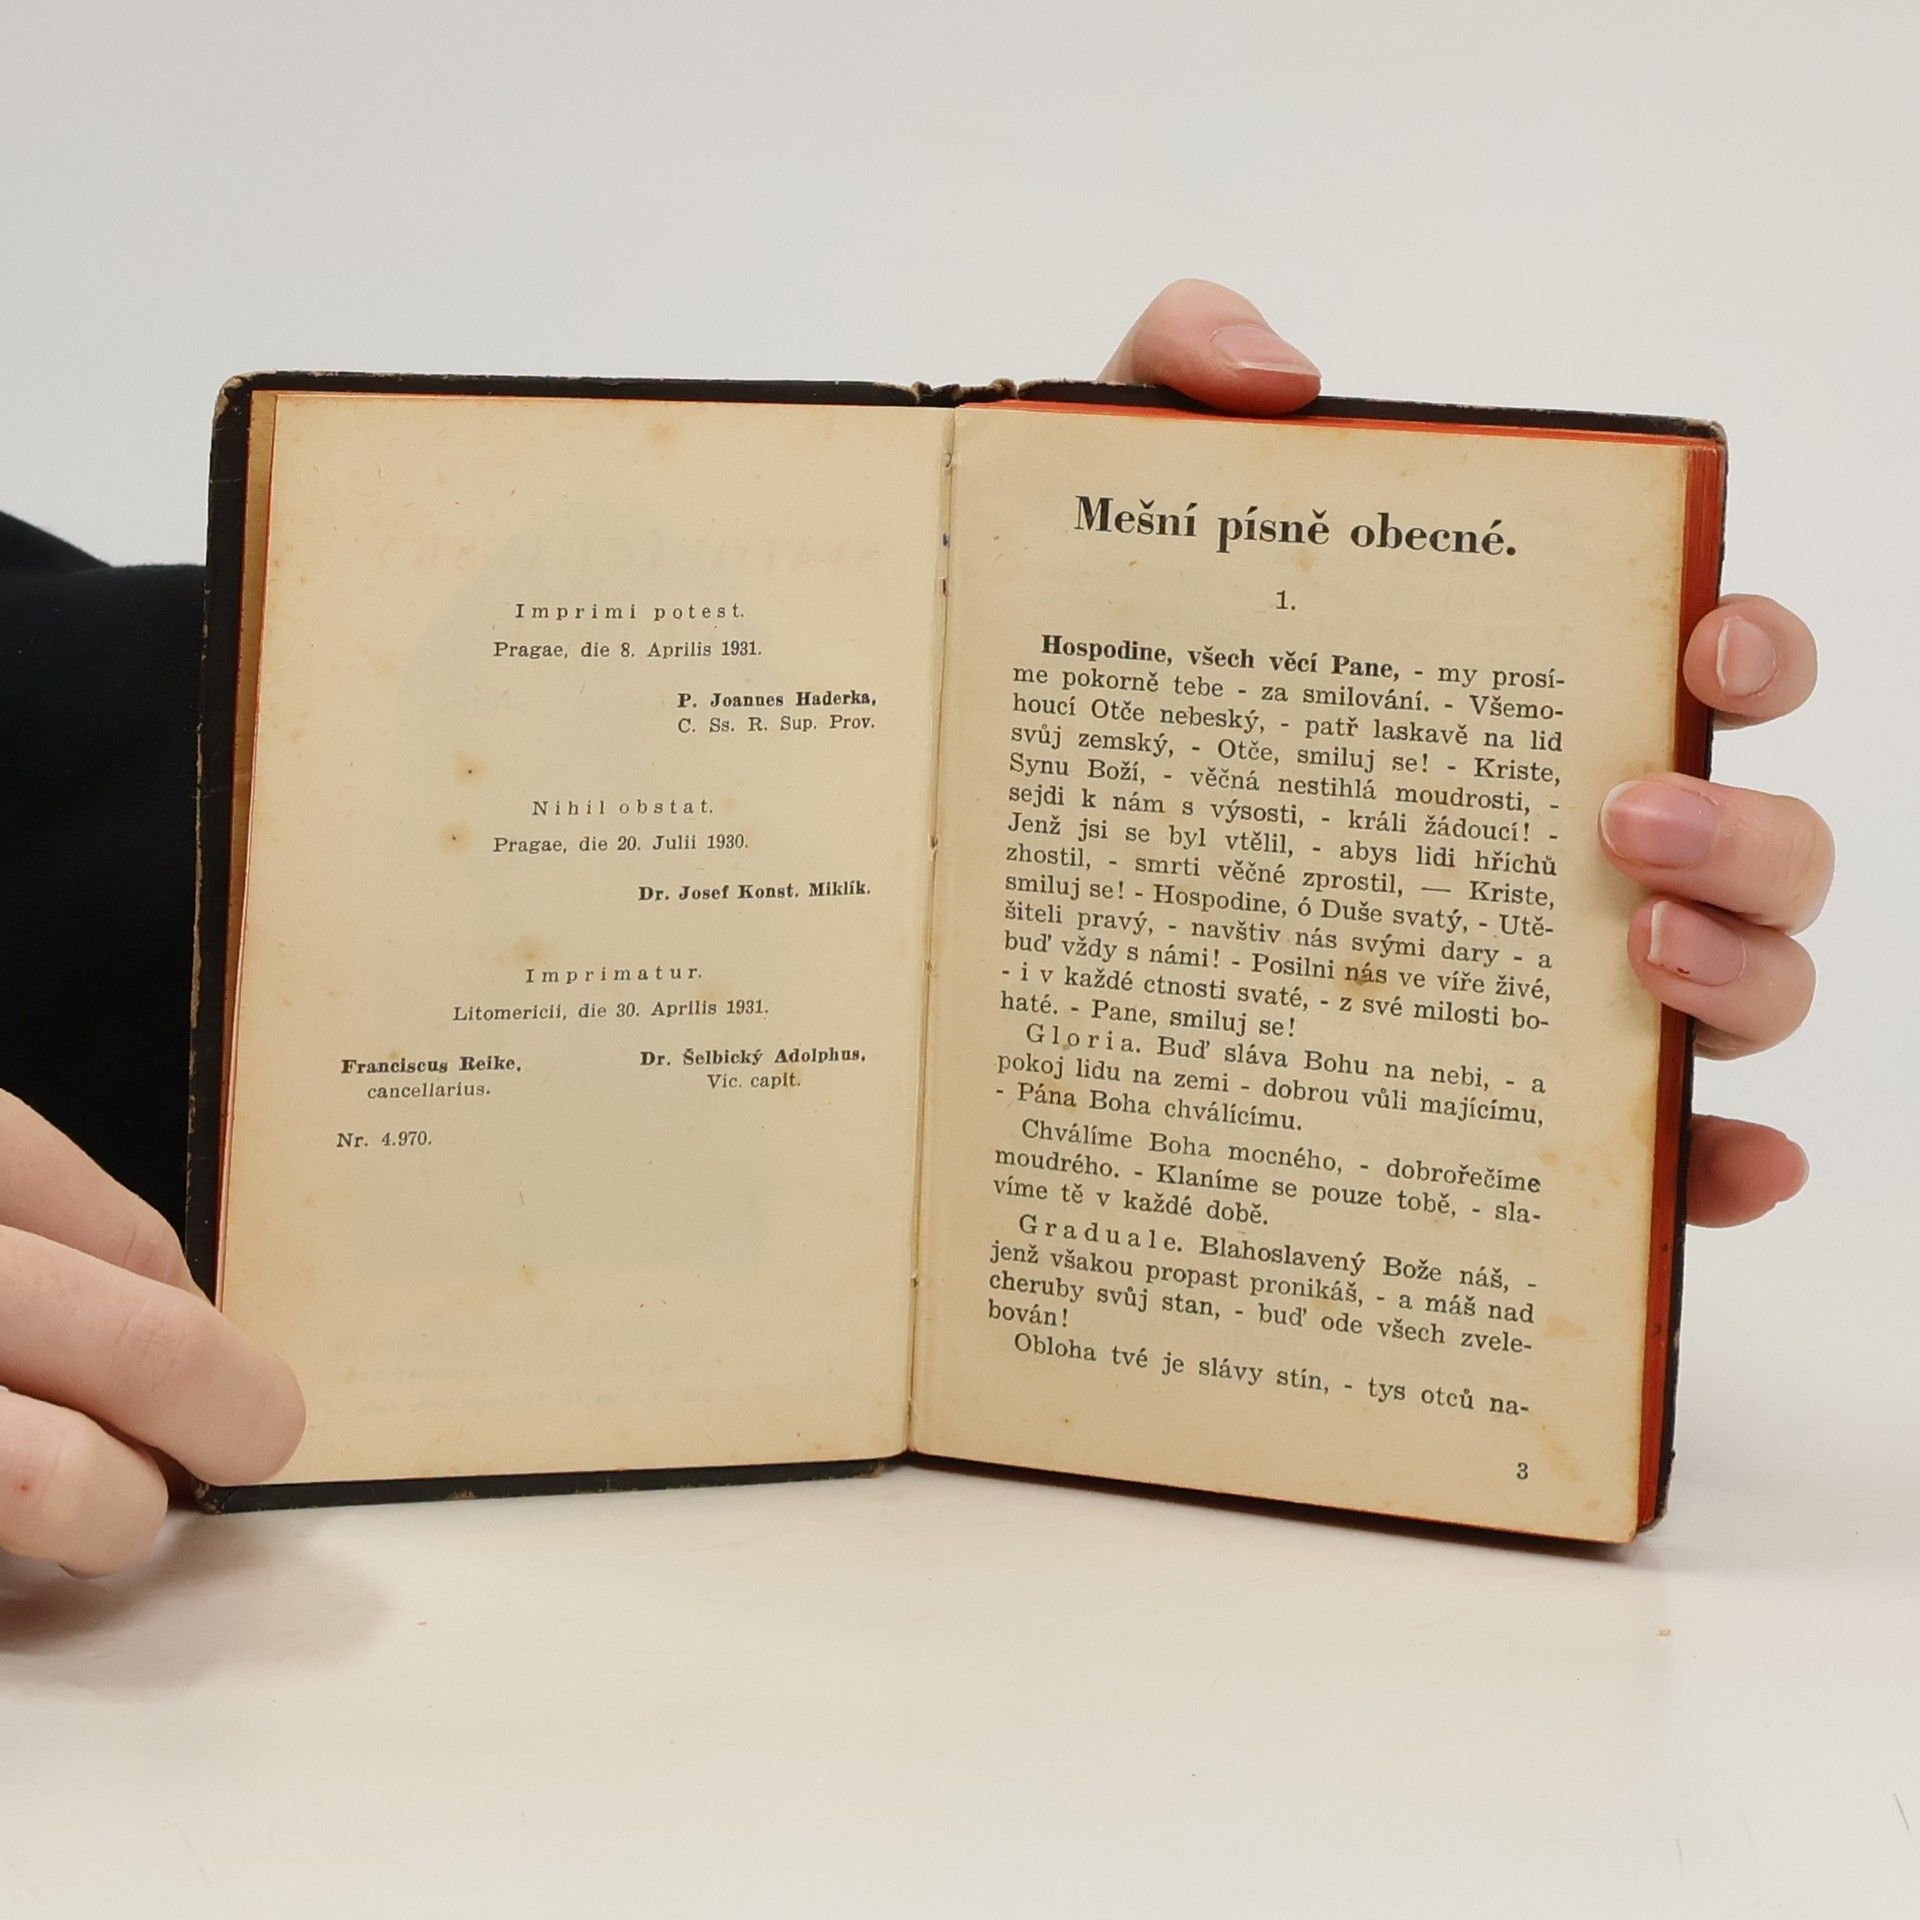 Imprimi potest.
Pragae, die 8. Aprilis 1931.
P. Joannes Haderka,
C. Ss. R. Sup. Prov.
Nihil obstat.
Pragae, die 20. Julii 1930.
Dr. Josef Konst. Miklík.
Imprimatur.
Litomericii, die 30. Aprilis 1931.
Franciscus Reike,
cancellarius.
Dr. Šelbický Adolphus,
Vic. capit.
Nr. 4.970.
Mešní písně obecné.
1.
Hospodine, všech věcí Pane, - my prosí-
me pokorně tebe - za smilování. - Všemo-
houcí Otče nebeský, - patř laskavě na lid
svůj zemský, - Otče, smiluj se! - Kriste,
Synu Boží, - věčná nestihlá moudrosti, -
sejdi k nám s výsosti, - králi žádoucí! -
Jenž jsi se byl vtělil, - abys lidi hříchů
zhostil, - smrti věčné zprostil, — Kriste,
smiluj se! - Hospodine, ó Duše svatý, - Utě-
šiteli pravý, - navštiv nás svými dary - a
buď vždy s námi! - Posilni nás ve víře živé,
- i v každé ctnosti svaté, - z své milosti bo-
haté. - Pane, smiluj se!
Gloria. Buď sláva Bohu na nebi, - a
pokoj lidu na zemi - dobrou vůli majícímu,
- Pána Boha chválícímu.
Chválíme Boha mocného, - dobrořečíme
moudrého. - Klaníme se pouze tobě, - sla-
víme tě v každé době.
Graduale. Blahoslavený Bože náš, -
jenž všakou propast pronikáš, - a máš nad
cheruby svůj stan, - buď ode všech zvele-
bován!
Obloha tvé je slávy stín, - tys otců na-
3